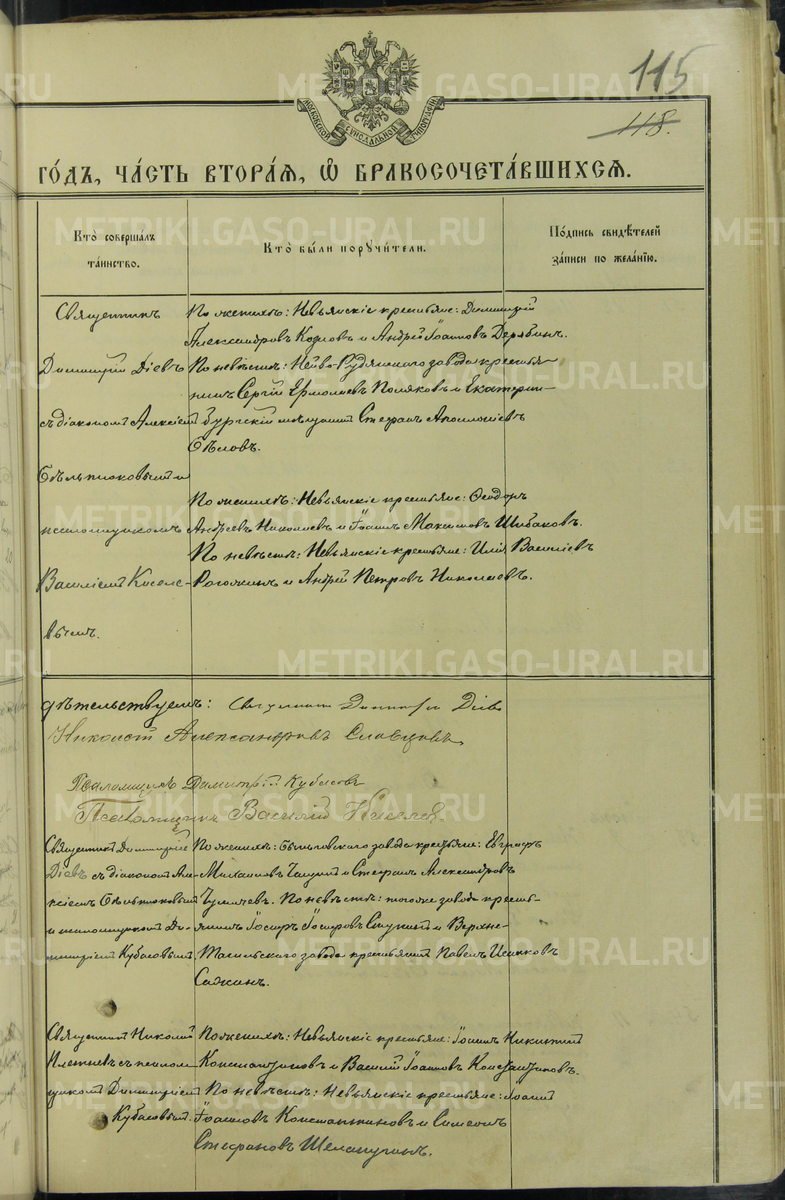 115
118.
МОСКОВСКОЙ СѴНОДАЛЬНОЙ ТИПОГРАФІИ
ГО́ДЪ, ЧА́СТЬ ВТОРА́Ѧ, Ѽ БРАКОСОЧЕТА́ВШИХСѦ.
Кто̀ соверша́лъ
та́инство.
Кто̀ бы́ли порꙋчи́тели.
По́дпись свидѣ́телей
за́писи по жела́нїю.
Священникъ
Димитрій Діевъ
съ діакономъ Алексіемъ
Бѣльтюковымъ и
псаломщикомъ
Василіемъ Киселе-
вымъ.
По женихѣ: Невьянскіе крестьяне: Димитрій
Александровъ Козловъ и Андрей Іоанновъ Дерябинъ.
По невѣстѣ: Нейво-Рудянскаго завода крестья-
нинъ Сергій Ермолаевъ Поляковъ и Екатерин-
бургскій мѣщанинъ Стефанъ Аполлоніевъ
Бѣловъ.
По женихѣ: Невьянскіе крестьяне: Ѳеодоръ
Андреевъ Николаевъ и Іоаннъ Максимовъ Шибаковъ.
По невѣстѣ: Невьянскіе крестьяне: Илія Василіевъ
Рогожкинъ и Андрей Петровъ Николаевъ.
дѣтельствуемъ: Священникъ Димитрій Діевъ
Николай Александровъ Словцовъ
Псаломщикъ Димитрій Кубасовъ
Псаломщикъ Василій Киселев
Священникъ Димитрій
Діевъ съ діакономъ Але-
ксіемъ Бѣльтюковымъ
и псаломщикомъ Ди-
митріемъ Кубасовымъ.
По женихѣ: Быньговскаго завода крестьяне: Евграфъ
Михаиловъ и Стефанъ Александровъ
По невѣстѣ: того же завода кресть-
янинъ Іосифъ Іосифовъ и Верхне-
Тагильскаго завода крестьянинъ Павелъ Исааковъ
Сажинъ.
Священникъ Николай
Плетневъ съ псалом-
щикомъ Димитріемъ
Кубасовымъ.
По женихѣ: Невьянскіе крестьяне: Іоаннъ Никитинъ
Константиновъ и Василій Іоанновъ Константиновъ.
По невѣстѣ: Невьянскіе крестьяне: Іоаннъ
Іоанновъ Константиновъ и Симеонъ
Стефановъ Шелапугинъ.
METRIKI.GASO-URAL.RU